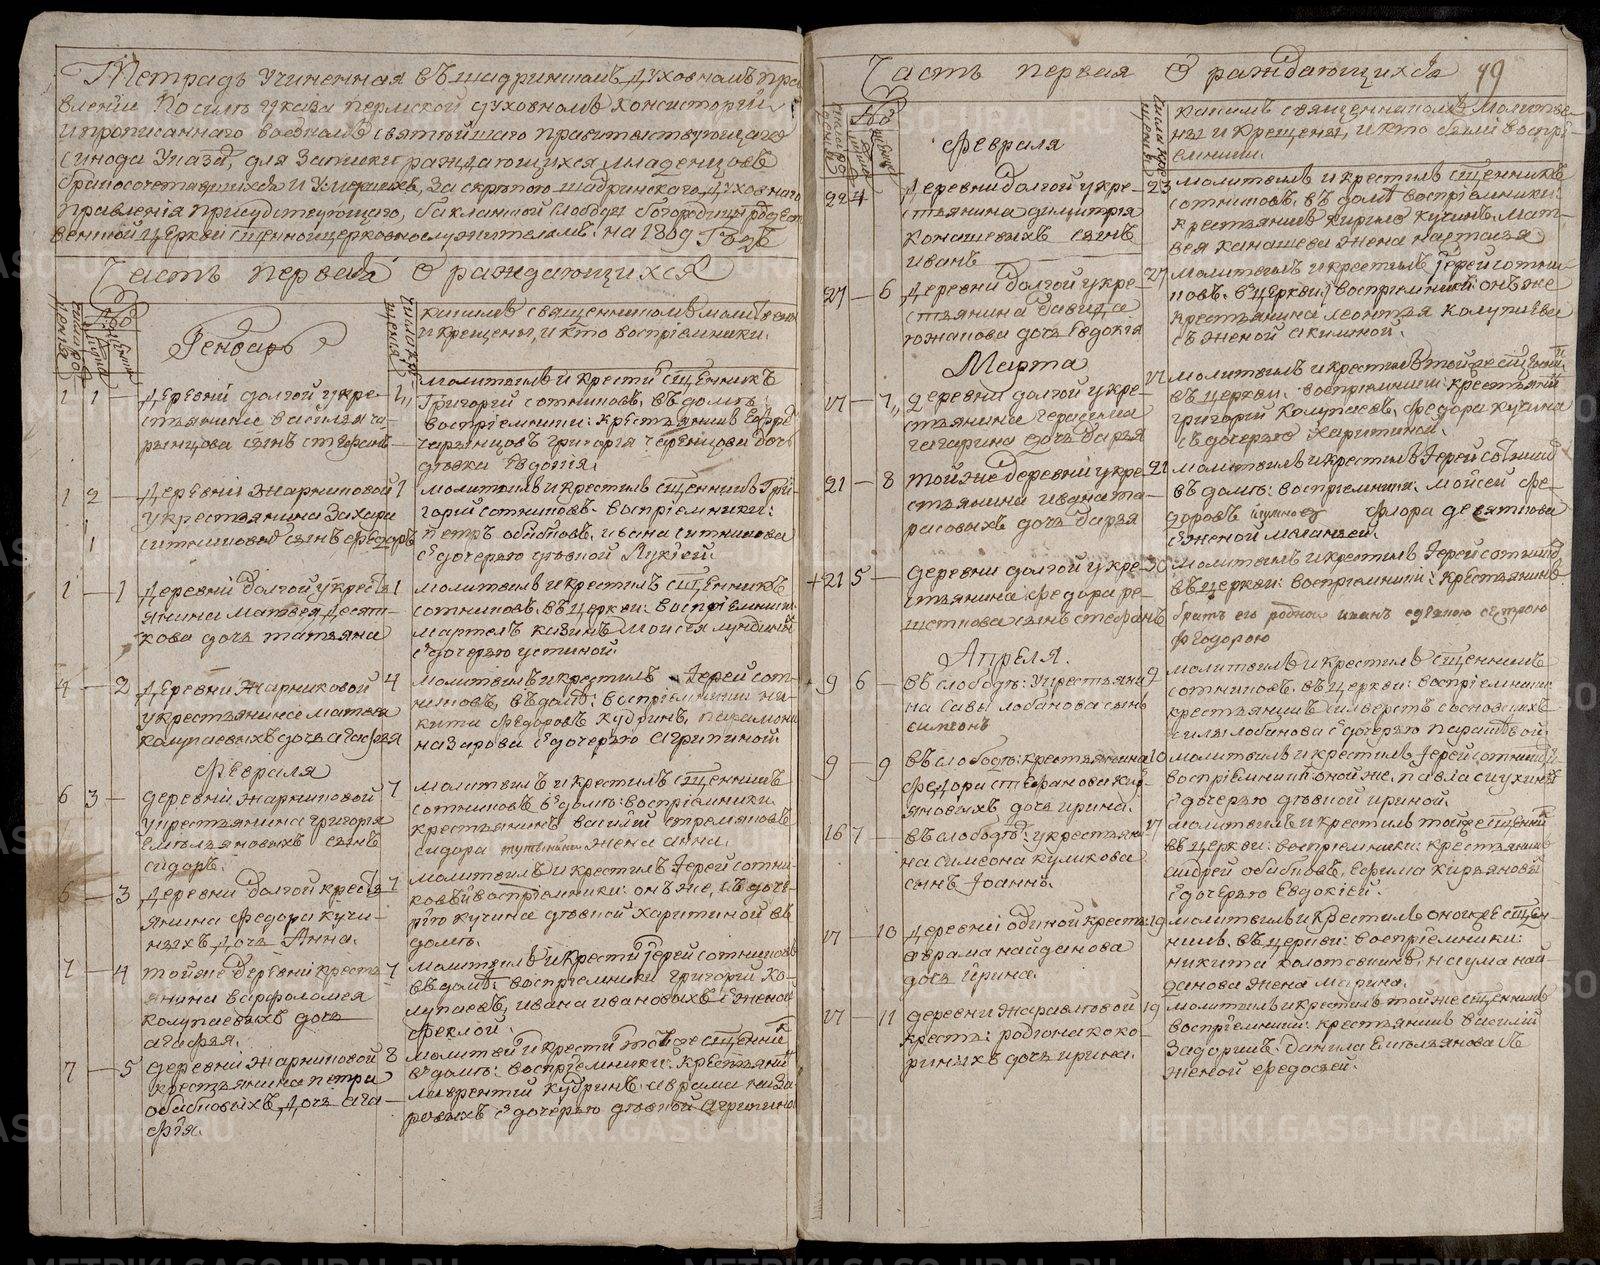 Тетрадь учиненная въ шадринскомъ духовномъ пра
вленіи по силѣ указа пермской духовной консисторіи
и прописаннаго во ономъ святѣйшаго правительствующаго
синода указа, для записки раждающихся младенцовъ
бракосочетавшихся и умершихъ, за скрѣпою шадринскаго духовнаго
правленія присудствующаго, бакланской слободы богородицерождест
венной церкви священноцерковнослужителямъ. на 1809 Годъ
Часть первая О раждающихся
Генварь
какимъ священникомъ молитвены
и крещены, и кто воспріемники.
1 1 деревни долгой у кре-
стьянина василья ча-
рынцова сынъ стефанъ
молитвилъ и крести священникъ
Григорій сотниковъ, въ домѣ.
воспріемники: крестьянинъ
чарынцовъ григорья черенцова дочь
дѣвка Евдокія.
1 2 деревни Жарниковой 1
у крестьянина Захара
ситникова сынъ федоръ
молитвилъ и крестилъ священникъ Гри-
горій сотниковъ. воспріемники:
петръ обабковъ, ивана ситникова
съ дочерью дѣвкой Лукіей.
1 1 деревни долгой у крестья 1
янина матвея десят-
кова дочь татьяна
молитвилъ и крестилъ священникъ
сотниковъ. въ церкви. воспріемники
съ дочерью устиной.
4 2 деревни Жарниковой 4
у крестьянина матвея
колупаевыхъ дочь агафья
молитвилъ и крестилъ Іерей сот-
никовъ, въ домѣ: воспріемники ни-
кита федоровъ кудринъ, парамона
назарова съ дочерью агрипиной.
Февраля
6 3 деревни жарниковой 7
у крестьянина григорія
Емельяновыхъ сынъ
сидоръ.
молитвилъ и крестилъ священникъ
сотниковъ въ домѣ: воспріемники
крестьянинъ василій
сидора жена анна.
6 3 деревни долгой кресть 7
янина федора кучи-
ныхъ дочь Анна.
молитвилъ и крестилъ Іерей сотни-
ковъ: воспріемники: онъ же, съ доче-
рью кучина дѣвкой харитиной въ
домѣ.
7 4 той же деревни кресть 7
янина варфоломея
колупаевыхъ дочь
агафья.
молитвилъ и крести Іерей сотниковъ
въ домѣ: воспріемники григорій ко-
лупаевъ, ивана ивановыхъ съ женой
феклой.
7 5 деревни жарниковой 8
крестьянина петра
обабковыхъ дочь ага-
фія.
молитви и крести той же священник
въ домѣ: воспріемники: крестьянин
лаврентій кудринъ аврама наза
ровыхъ съ дочерью дѣвкой агрипиной
Часть первая О раждающихся 49
Февраля
какимъ священникомъ молитве
ны и крещены, и кто были воспрі-
емники.
22 4 деревни долгой у кре- 23
стьянина димитрія
конашевыхъ сынъ
иванъ
молитвилъ и крестилъ священникъ
сотниковъ. въ домѣ воспріемники:
крестьянинъ кирило кучинъ. мат-
вея канашева жена настазья
27 6 деревни долгой у кре- 27
стьянина давида
южакова дочь евдокія
молитвилъ и крестилъ Іерей сотни
ковъ. въ церкви. воспріемники: онъ же
крестьянина леонтья колупаева
съ женой акилиной.
Марта
17 7 деревни долгой у кре-
стьянина герасима
гагарина дочь дарья
молитвилъ и крестилъ той же священник
въ церкви. воспріемники крестьянин
григорій колупаевъ, федора кучина
съ дочерью Харитиной.
21 8 той же деревни у кре- 21
стьянина ивана та-
расовыхъ дочь дарья
молитвилъ и крестилъ Іерей сотник
въ домѣ: воспріемники: мойсей фе-
доровъ флора девяткова
съ женой маланьей.
+21 5 деревни долгой у кре- 30
стьянина федора ре-
шеткова сынъ стефанъ
молитвилъ и крестилъ Іерей сотник
въ церкви: воспріемники: крестьянинъ
братъ его родной иванъ с сестрою
федорою
Апреля.
9 6 въ слободѣ: у крестьяни 9
на савы лобанова сынъ
симеонъ
молитвилъ и крестилъ священникъ
сотниковъ. въ церкви: воспріемники
крестьянинъ силверстъ сосновскихъ
силы лобанова съ дочерью парасковой.
9 9 въ слободѣ: крестьянина 10
федора стефанова кир-
яновыхъ дочь ирина.
молитвилъ и крестилъ Іерей сотник
воспріемники: оной же, павла
съ дочерью дѣвкой ириной.
16 7 въ слободѣ: у крестьяни- 17
на симеона куликова
сынъ Іоаннъ.
молитвилъ и крестилъ той же священник
въ церкви: воспріемники: крестьянинъ
андрей обабковъ, ефрима кирьяновы
съ дочерью Евдокіей.
17 10 деревни одиной кресть: 19
аврама найданова
дочь ирина.
молитвилъ и крестилъ оной же священ-
никъ. въ церкви: воспріемники:
никита колотовкинъ, наума най-
данова жена марина.
17 11 деревни жаравковой 19
кресть: родиона коко-
риныхъ дочь ирина.
молитвилъ и крестилъ той же священникъ
воспріемники: крестьянинъ василій
Задоринъ. данила емельянова съ
женой федосьей.